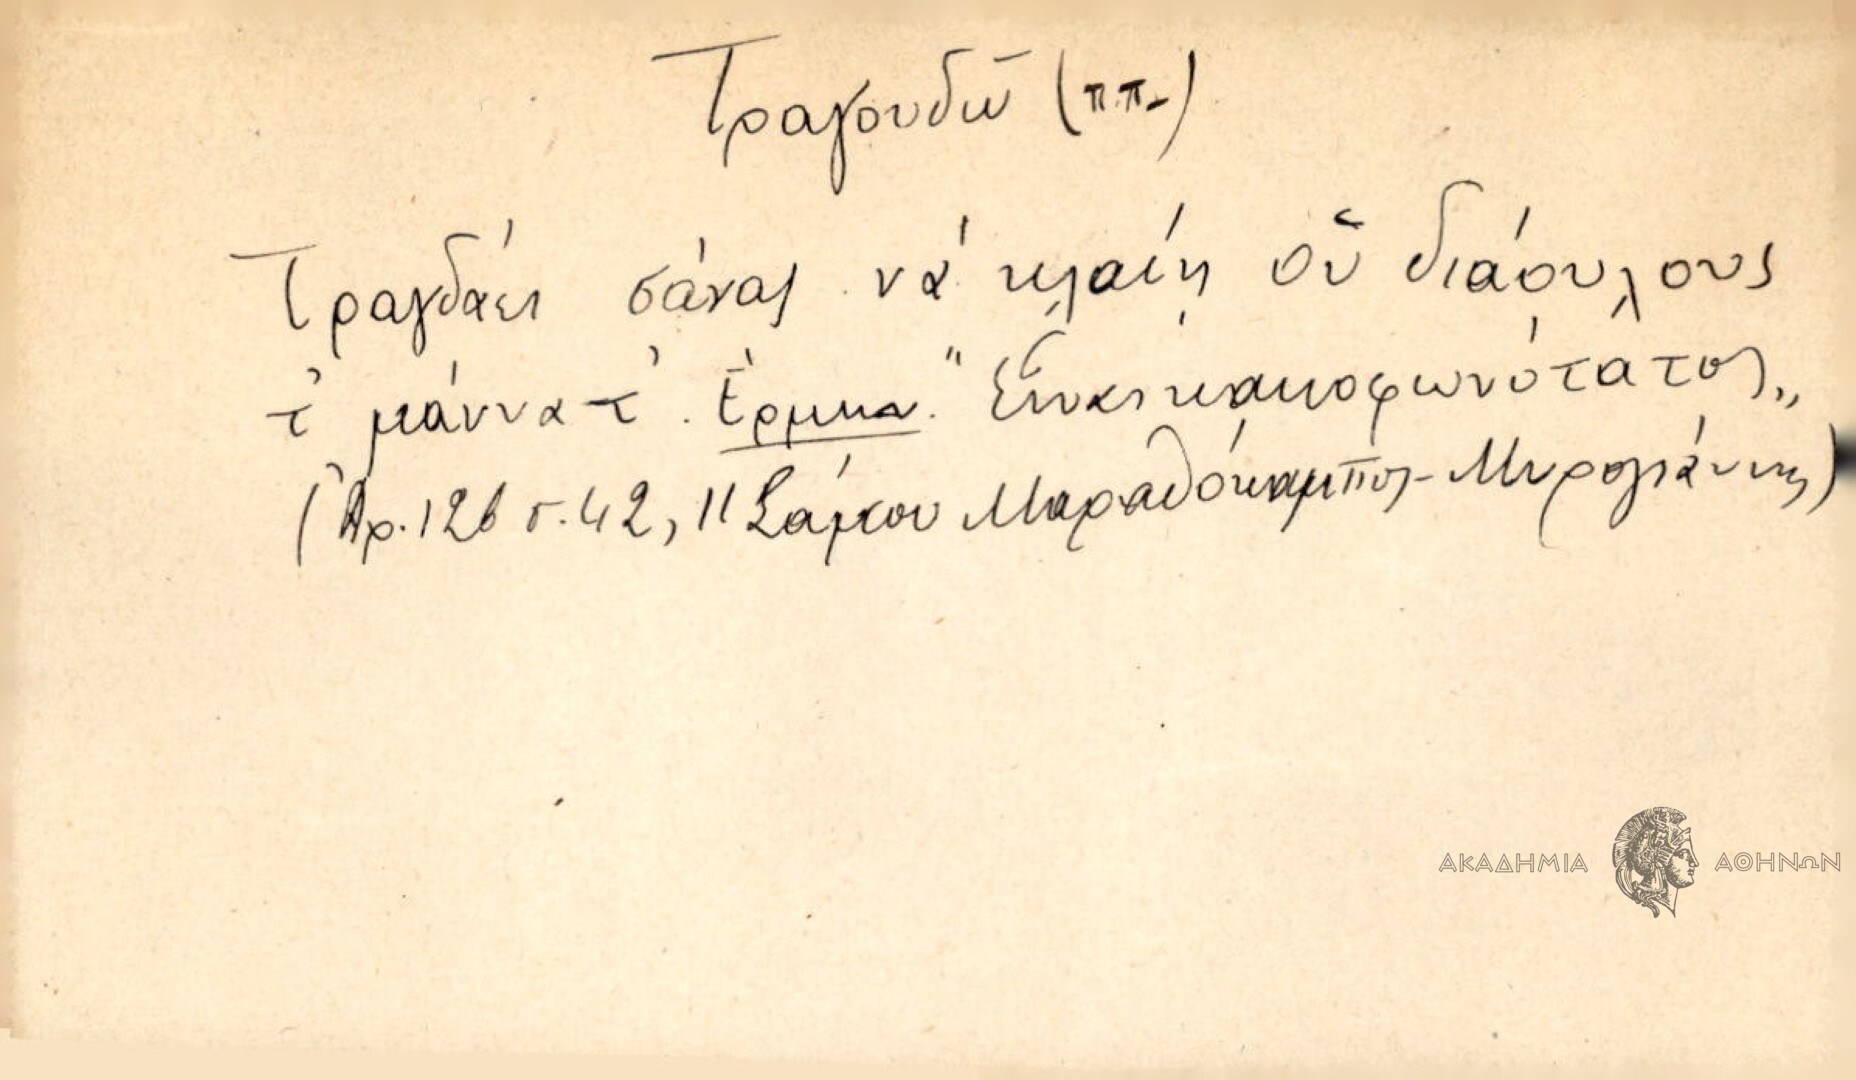 Τραγουδῶ (π.π.)
Τραγδάει σάνας νά κλαίη οὑ διάουλους
τ' μάννα τ'. Ἑρμην. "Εἶναι κακοφωνότατος"
(Ἀρ. 126 σ. 42, 11 Σάμου Μαραθόκαμπος - Μυρογιάννης)
ΑΚΑΔΗΜΙΑ ΑΘΗΝΩΝ